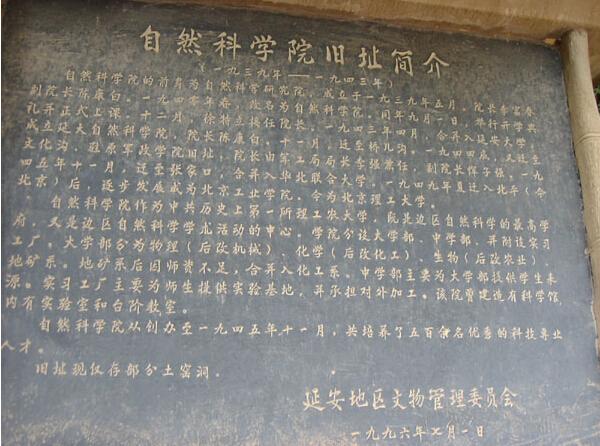 自然科学院旧址简介
（一九三九年——一九四三年）
自然科学院的前身为自然科学研究院，成立于一九三九年五月，院长李富春
副院长陈康白。一九四〇年春改为自然科学院。同年九月，举行开学典
礼并正式上课。十二月，徐特立接任院长。一九四三年四月，合并入延安大学
成立延大自然科学院，院长陈康白。
文化沟，
四五年十一月，迁至张家口，
北京）后，逐步发展成为北京工业学院。今为北京理工大学。
自然科学院作为中共历史上第一所理工农大学，既是边区自然科学的最高学
府，又是边区自然科学活动的中心。学院分设大学部、中学部、并附设实习
工厂。大学部分为物理（后改机械）、化学（后改化工）、生物（后改农业）
地矿系。地矿系后因师资不足，合并入化工系。中学部主要为大学部提供学生来
源。实习工厂主要为师生提供实验基地，并承担对外加工。该院曾建造有科学馆，
内有实验室和台阶教室。
自然科学院从创办至一九四五年十一月，共培养了五百余名优秀的科技专业
人才。
旧址现仅存部分土窑洞。
延安地区文物管理委员会
一九九六年七月一日